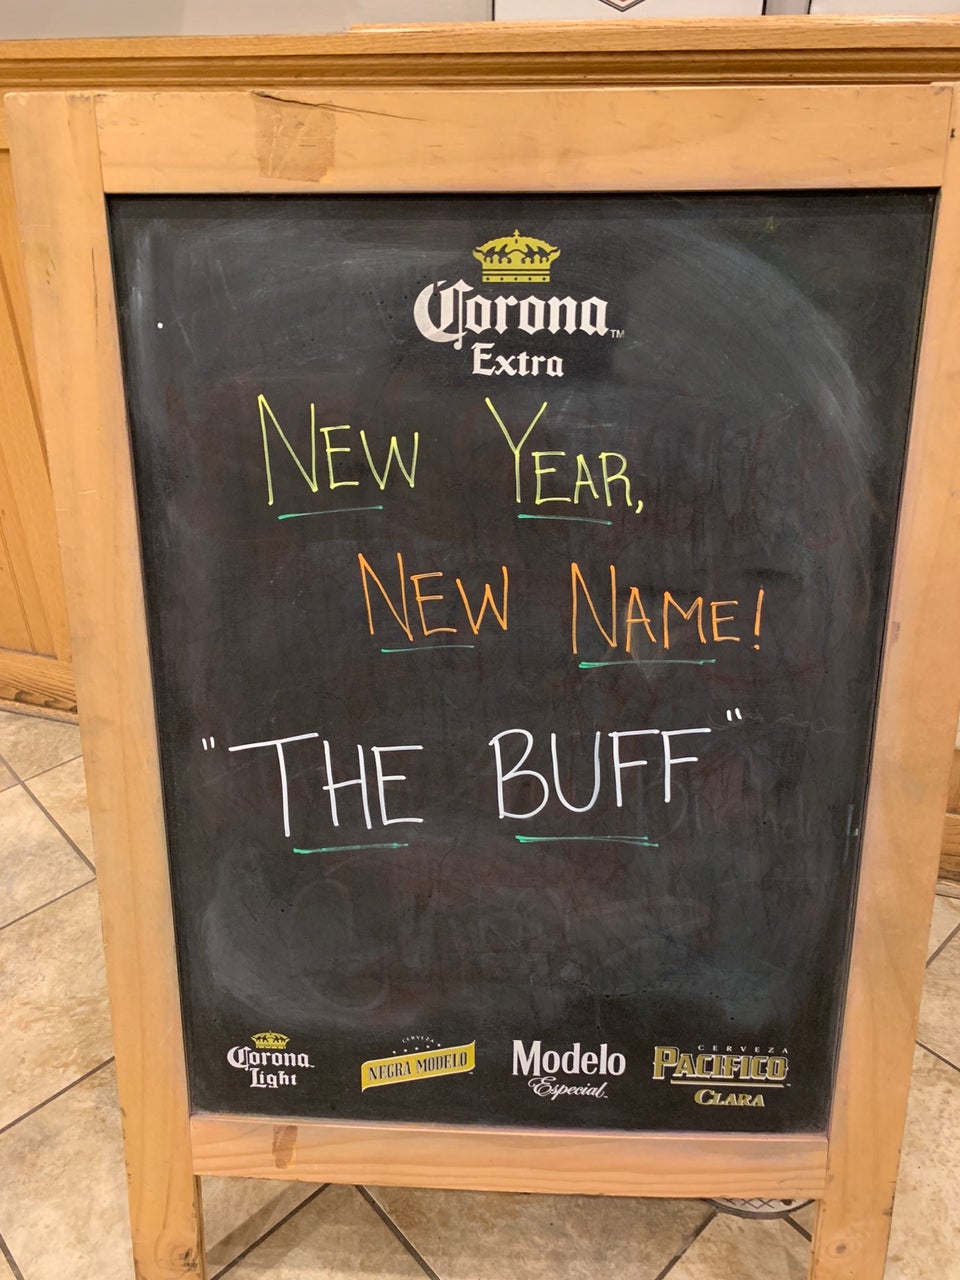 Corona™
Extra
NEW YEAR,
NEW NAME!
"THE BUFF"
Corona
Light
CERVEZA
NEGRA MODELO
Modelo
Especial
CERVEZA
PACIFICO
CLARA